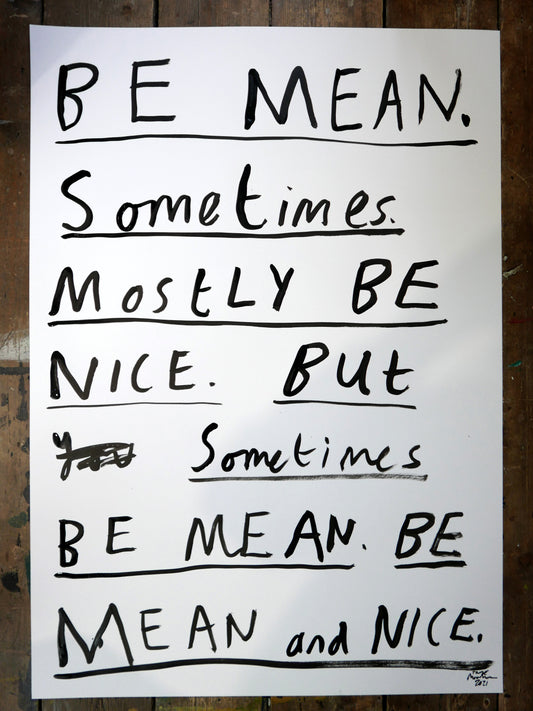 BE MEAN.
Sometimes.
MostLY BE
NICE. BUt
You Sometimes
BE MEAN. BE
MEAN and NICE.
2021